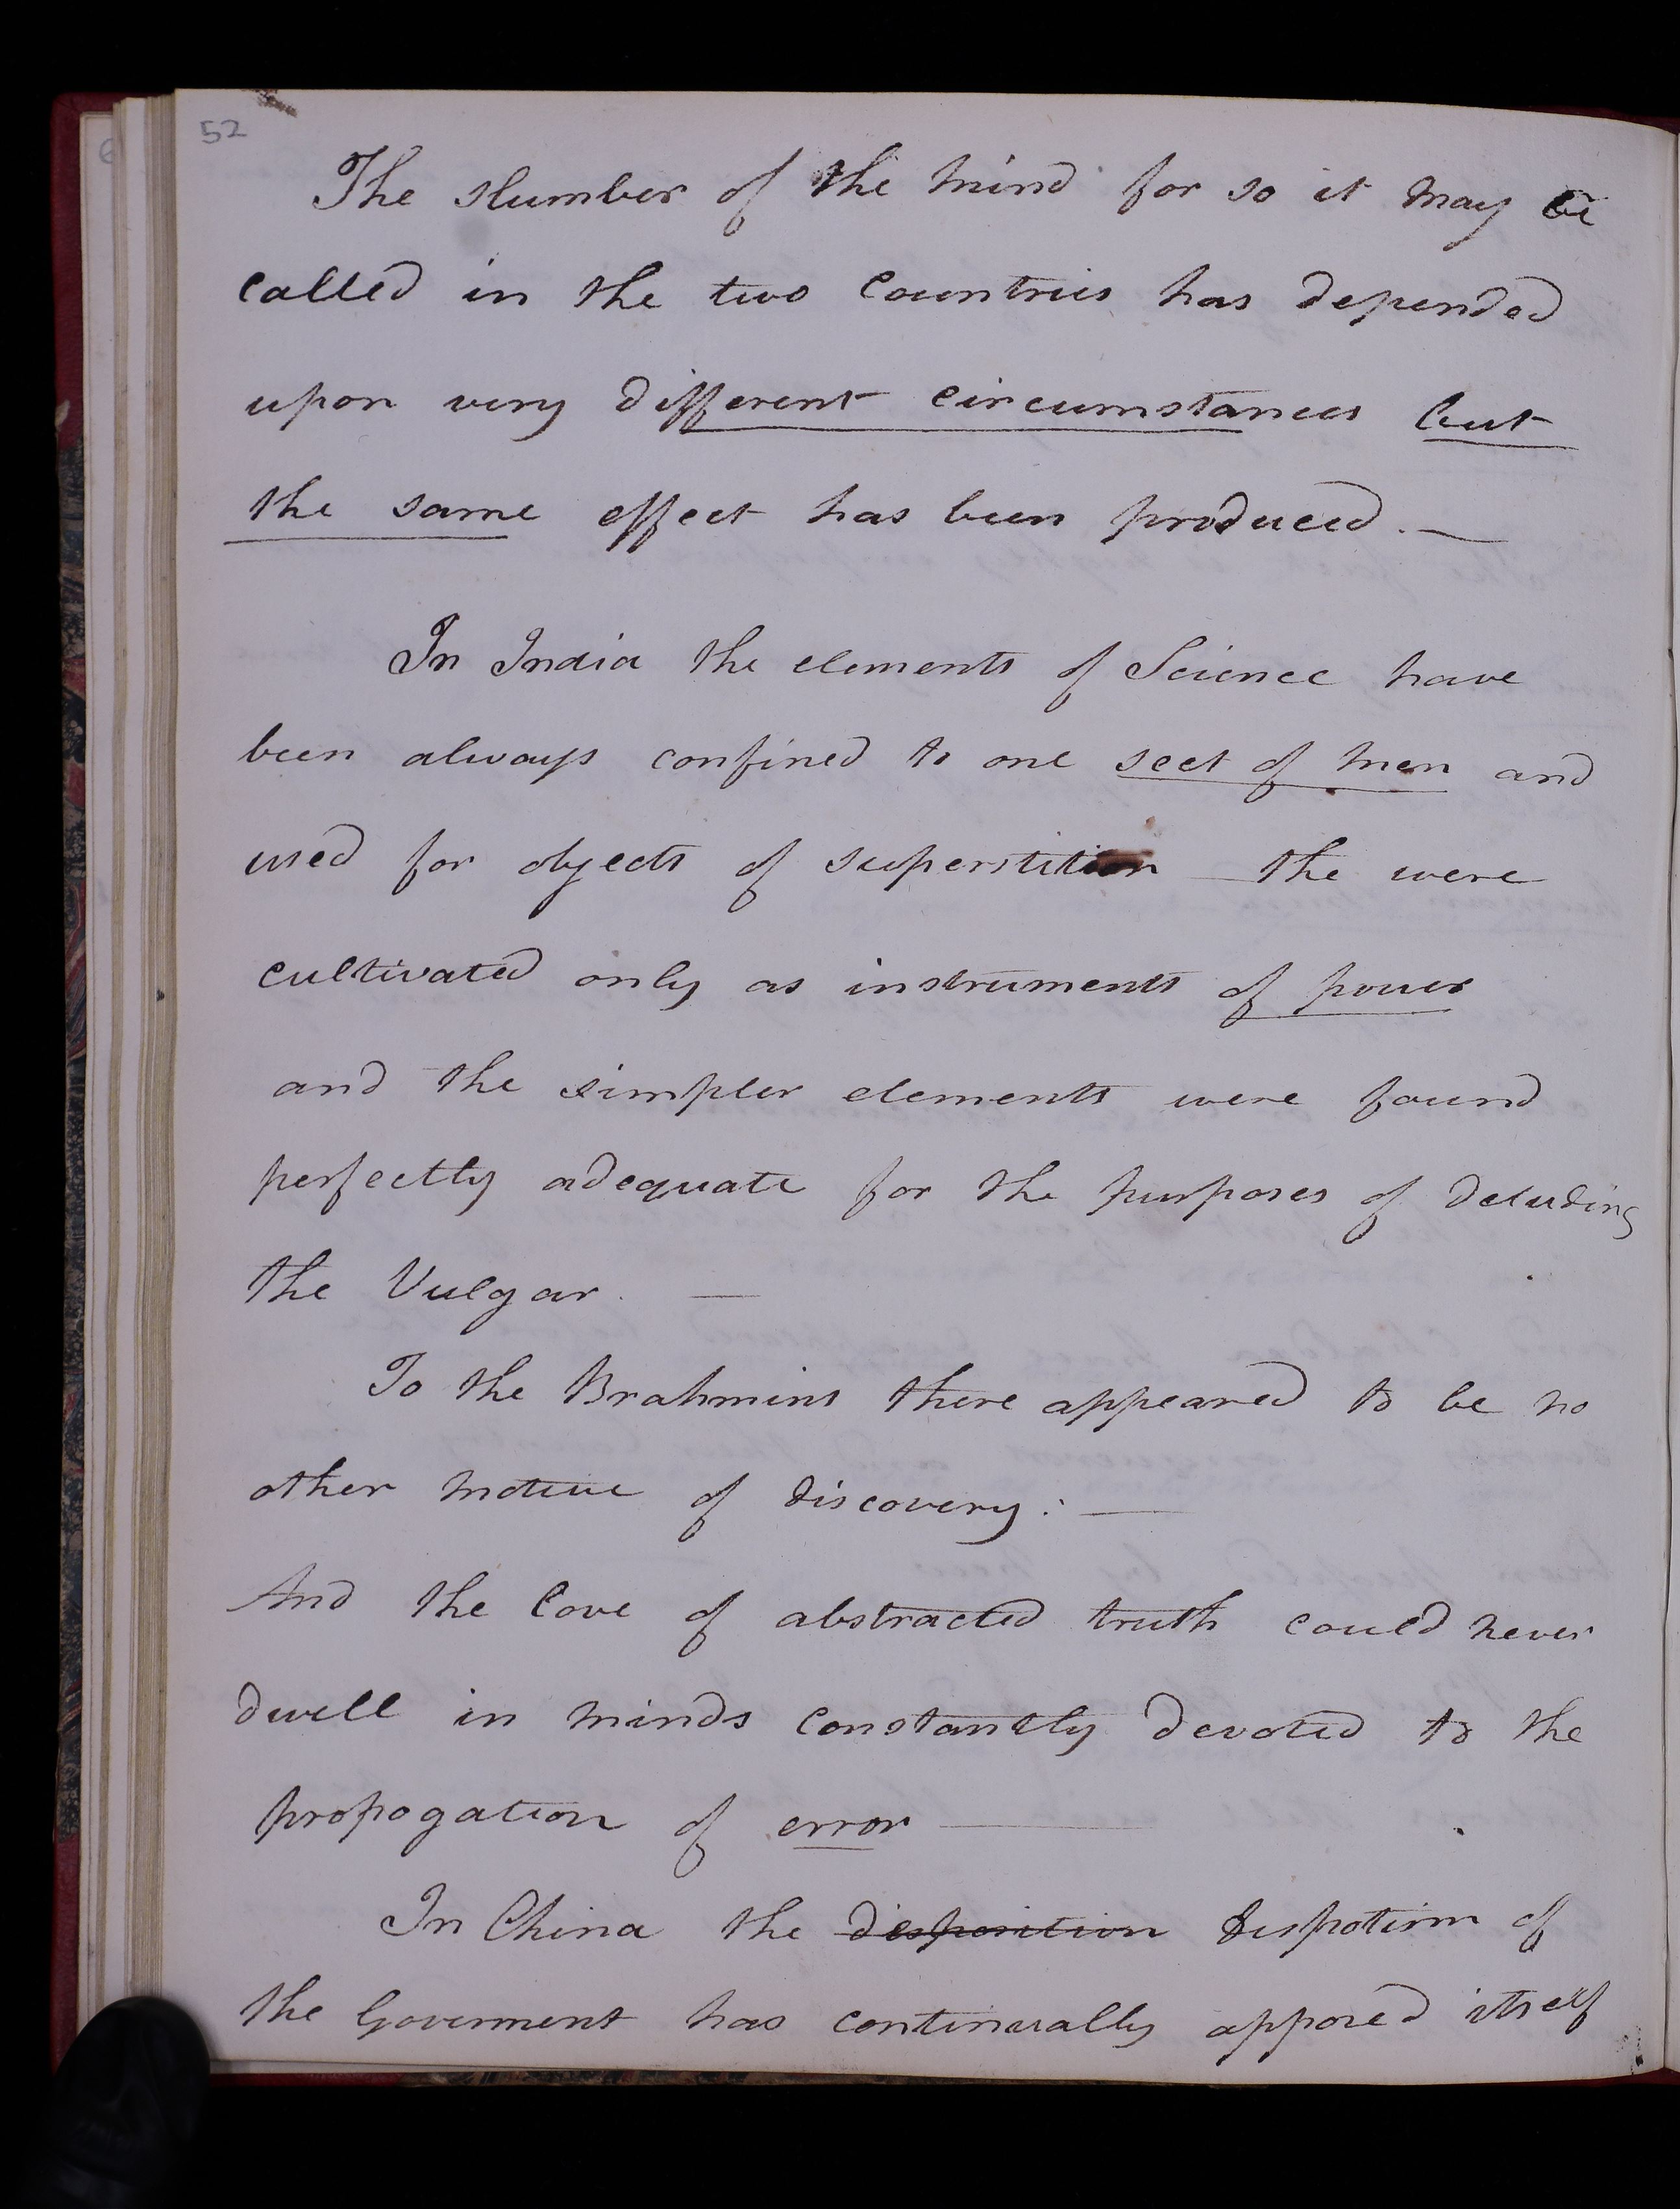 52
The slumber of the mind for so it may be
called in the two Countries has depended
upon very different circumstances but
the same effect has been produced. —
In India the elements of Science have
been always confined to one sect of men and
used for objects of superstition the were
cultivated only as instruments of power
and the simpler elements were found
perfectly adequate for the purposes of deluding
the Vulgar. —
To the Brahmins there appeared to be no
other motive of discovery: —
And the love of abstracted truth could never
dwell in minds constantly devoted to the
propogation of error —
In China the disposition dispotism of
the Goverment has continually opposed itself